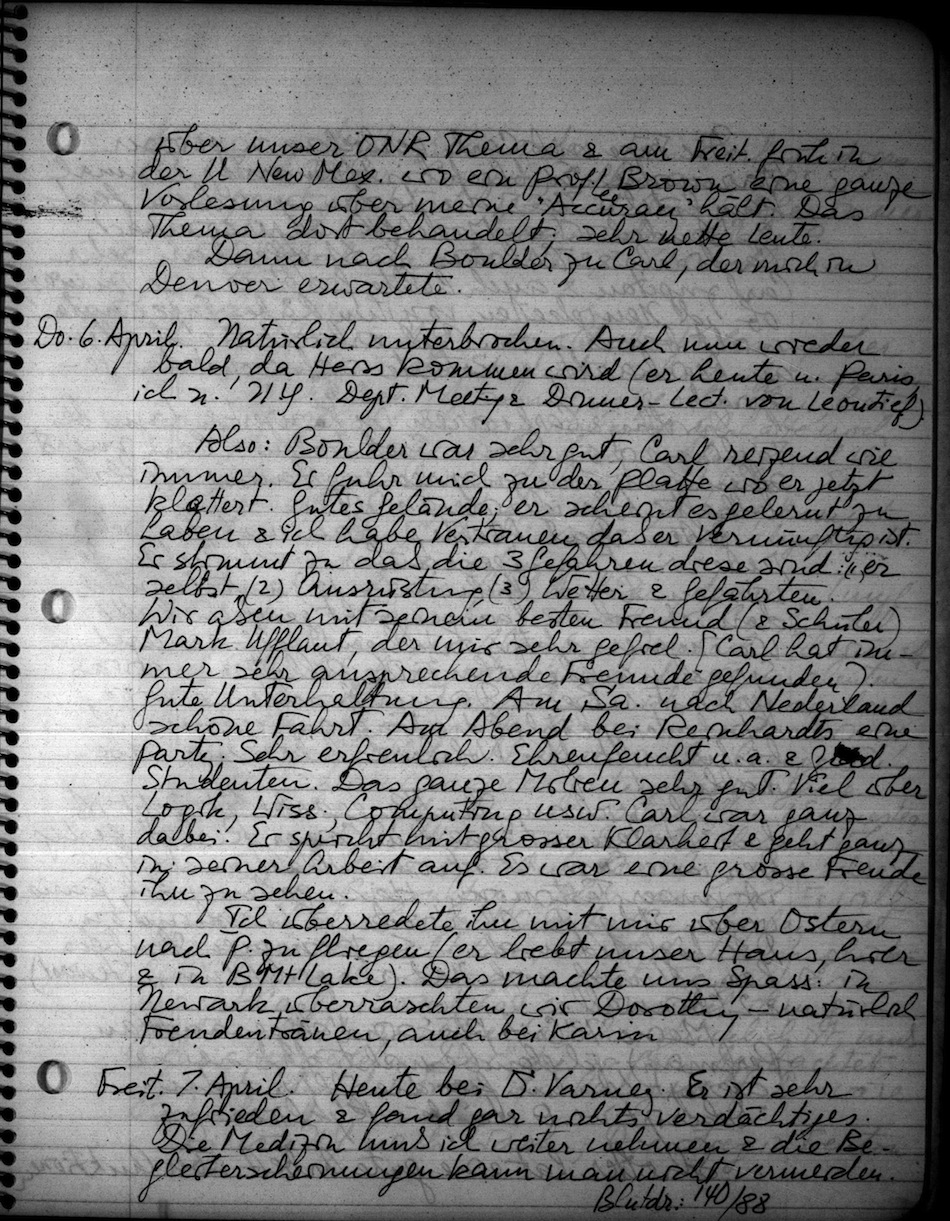 über unser ONR Thema & am Freit. früh in
der U New Mex. wo ein Prof. Brown eine ganze
Vorlesung über meine "Accuracy" hält. Das
Thema dort behandelt, sehr nette Leute.
Dann nach Boulder zu Carl, der mich in
Denver erwartete.
Do. 6. April. Natürlich unterbrochen. Auch nun wieder
bald, da Herr kommen wird (er heute n. Paris,
ich n. NY. Dept. Meetg & Dinner-Lect. von Leontief).
Also: Boulder war sehr gut, Carl reizend wie
immer. Er fuhr mich zu der Platte wo er jetzt
klettert. Gutes Gelände; er scheint es gelernt zu
haben & ich habe Vertrauen dass er vernünftig ist.
Er stimmt zu das die 3 Gefahren diese sind: (1) er
selbst, (2) Ausrüstung, (3) Wetter & Gefährten.
Wir asen mit seinem besten Freund (& Schüler)
Mark Ufflant, der mir sehr gefiel. (Carl hat im-
mer sehr ansprechende Freunde gefunden).
Gute Unterhaltung. Am Sa. nach Nederland
schöne Fahrt. Am Abend bei Reinhardts eine
Party. Sehr erfreulich. Ehrenfeucht u.a. &
Studenten. Das ganze Milieu sehr gut. Viel über
Logik, Wiss., Computing usw. Carl war ganz
dabei. Er spricht mit grosser Klarheit & geht ganz
in seiner Arbeit auf. Es war eine grosse Freude
ihn zu sehen.
Ich überredete ihn mit mir über Ostern
nach P. zu fliegen (er liebt unser Haus, hier
& in B Mt Lake). Das machte uns Spass: in
Newark überraschten wir Dorothy, – natürlich
Freudentränen, auch bei Karin
Freit. 7. April. Heute bei D. Varney. Er ist sehr
zufrieden & fand gar nichts verdächtiges.
Die Medizin muss ich weiter nehmen & die Be-
gleiterscheinungen kann man nicht vermeiden.
Blutdr.: 140/88